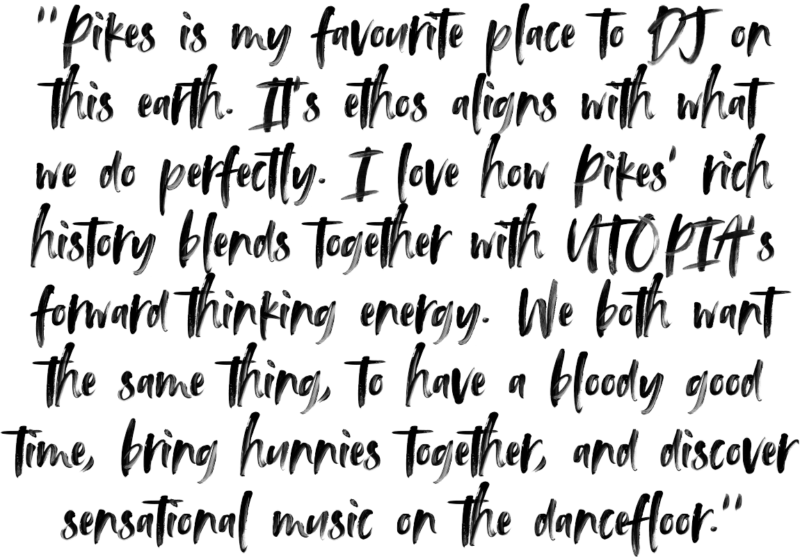 "Pikes is my favourite place to DJ on
this earth. It's ethos aligns with what
we do perfectly. I love how Pikes' rich
history blends together with UTOPIA's
forward thinking energy. We both want
the same thing, to have a bloody good
time, bring hunnies together, and discover
sensational music on the dancefloor."